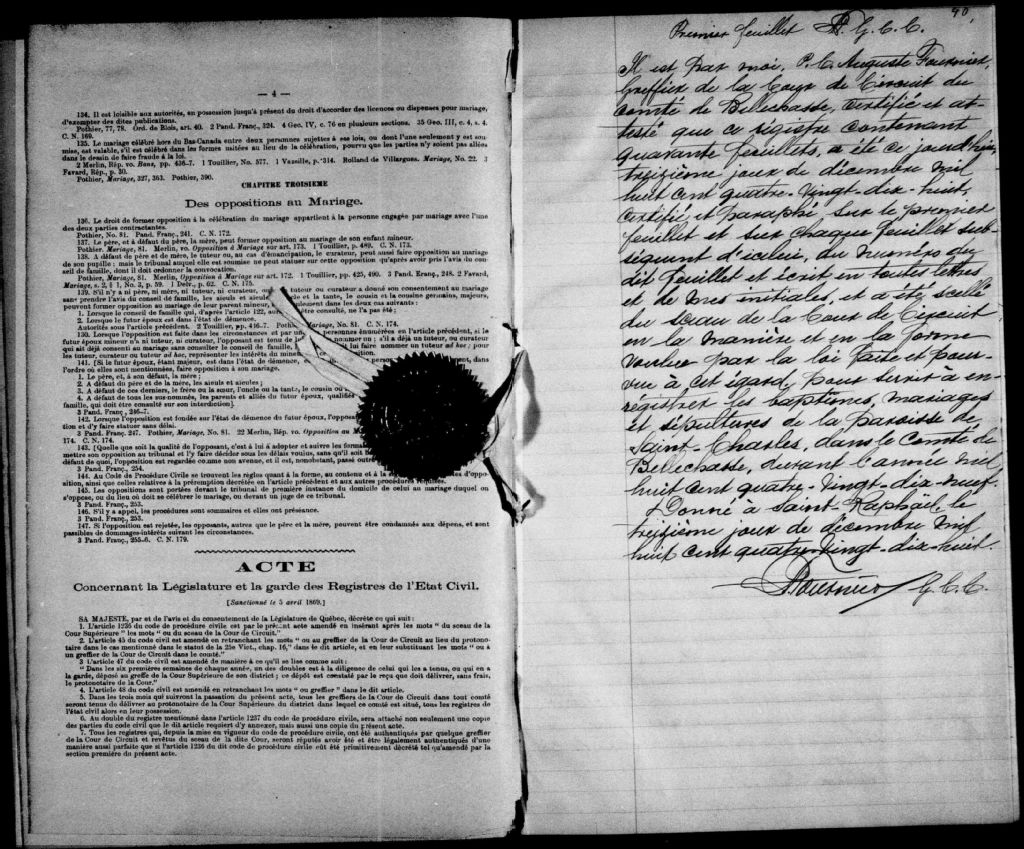 — 4 —
134. Il est loisible aux autorités, en possession jusqu'à présent du droit d'accorder des licences ou dispenses pour mariage,
d'exempter des dites publications.
Pothier, 77, 78. Ord. de Blois, art. 40. 2 Pand. Franç., 324. 4 Geo. IV, c. 76 en plusieurs sections. 35 Geo. III, c. 4, s. 4.
C. N. 169.
135. Le mariage célébré hors du Bas-Canada entre deux personnes sujettes à ses lois, ou dont l'une seulement y est sou-
mise, est valable, s'il est célébré dans les formes usitées au lieu de la célébration, pourvu que les parties n'y soient pas allées
dans le dessin de faire fraude à la loi.
2 Merlin, Rép. vo. Bans, pp. 436-7. 1 Touillier, No. 577. 1 Vazille, p. 314. Rolland de Villargues. Mariage, No. 22. 3
Favard, Rép., p. 30.
Pothier, Mariage, 327, 363. Pothier, 390.
CHAPITRE TROISIEME
Des oppositions au Mariage.
136. Le droit de former opposition à la célébration du mariage appartient à la personne engagée par mariage avec l'une
des deux parties contractantes.
Pothier, No. 81. Pand. Franç., 241. C. N. 172.
137. Le père, et à défaut du père, la mère, peut former opposition au mariage de son enfant mineur.
Pothier, Mariage, 81. Merlin, vo. Opposition à Mariage sur art. 173. 1 Touillier, p. 489. C. N. 173.
138. A défaut de père et de mère, le tuteur, ou, au cas d'émancipation, le curateur, peut aussi faire opposition au mariage
de son pupille ; mais le tribunal auquel elle est soumise ne peut statuer sur cette opposition qu'après avoir pris l'avis du con-
seil de famille, dont il doit ordonner la convocation.
Pothier, Mariage, 81. Merlin, Opposition à Mariage sur art. 172. 1 Touillier, pp. 425, 490. 3 Pand. Franç., 248. 2 Favard,
Mariage, s. 2, § 1, No. 3, p. 59. 1 Delv., p. 62. C. N. 175.
139. S'il n'y a ni père, ni mère, ni tuteur, ni curateur, ou tuteur ou curateur a donné son consentement au mariage
sans prendre l'avis du conseil de famille, les aïeuls et aïeules de et la tante, le cousin et la cousine germains, majeurs,
peuvent former opposition au mariage de leur parent mineur, ulement dans les deux cas suivants :
1. Lorsque le conseil de famille qui, d'après l'article 122, au être consulté, ne l'a pas été ;
2. Lorsque le futur époux est dans l'état de démence.
Autorités sous l'article précédent. 2 Touillier, pp. 416-7. Poth Mariage, No. 81. C. N. 174.
130. Lorsque l'opposition est faite dans les circonstances et par un personnes énumérées en l'article précédent, si le
futur époux mineur n'a ni tuteur, ni curateur, l'opposant est tenu de mmer un ; s'il a déjà un tuteur, ou curateur
qui ait déjà consenti au mariage sans consulter le conseil de famille, lui faire nommer un tuteur ad hoc ; pour
les tuteur, curateur ou tuteur ad hoc, représenter les intérêts du mine ition.
141. [Si le futur époux, étant majeur, est dans l'état de démence, dans
l'ordre où elles sont mentionnées, faire opposition à son mariage.
1. Le père, et, à son défaut, la mère ;
2. A défaut du père et de la mère, les aïeuls et aïeules ;
3. A défaut de ces derniers, le frère ou la sœur, l'oncle ou la tante, le cousin ou
4. A défaut de tous les sus-nommés, les parents et alliés du futur époux, qualifiés
famille, qui doit être consulté sur son interdiction].
3 Pand. Franç., 246-7.
142. Lorsque l'opposition est fondée sur l'état de démence du futur époux, l'opposa
tion et d'y faire statuer sans délai.
3 Pand. Franç. 247. Pothier, Mariage, No. 81. 22 Merlin, Rép. vo. Opposition au M
174. C. N. 174.
143. [Quelle que soit la qualité de l'opposant, c'est à lui à adopter et suivre les forma
mettre son opposition au tribunal et l'y faire décider sous les délais voulus, sans qu'il soit
défaut de quoi, l'opposition est regardée comme non avenue, et il est, nonobstant, passé outre
3 Pand. Franç., 254.
144. Au Code de Procédure Civile se trouvent les règles quant à la forme, au contenu et à la d'oppo-
sition, ainsi que celles relatives à la péremption décrétée en l'article précédent et aux autres procédures requises.
145. Les oppositions sont portées devant le tribunal de première instance du domicile de celui au mariage duquel on
s'oppose, ou du lieu où doit se célébrer le mariage, ou devant un juge de ce tribunal.
3 Pand. Franç., 253.
146. S'il y a appel, les procédures sont sommaires et elles ont préséance.
3 Pand. Franç., 253.
147. Si l'opposition est rejetée, les opposants, autres que le père et la mère, peuvent être condamnés aux dépens, et sont
passibles de dommages-intérêts suivant les circonstances.
3 Pand. Franç., 255-6. C. N. 179.
ACTE
Concernant la Législature et la garde des Registres de l'Etat Civil.
[Sanctionné le 5 avril 1869.]
SA MAJESTE, par et de l'avis et du consentement de la Législature de Québec, décrète ce qui suit :
1. L'article 1236 du code de procédure civile est par le présent acte amendé en insérant après les mots " du sceau de la
Cour Supérieure " les mots " ou du sceau de la Cour de Circuit."
2. L'article 45 du code civil est amendé en retranchant les mots " ou au greffier de la Cour de Circuit au lieu du protono-
taire dans le cas mentionné dans le statut de la 25e Vict., chap. 16," dans le dit article, et en leur substituant les mots " ou à
un greffier de la Cour de Circuit dans le comté."
3 L'article 47 du code civil est amendé de manière à ce qu'il se lise comme suit :
" Dans les six premières semaines de chaque année, un des doubles est à la diligence de celui qui les a tenus, ou qui en a
la garde, déposé au greffe de la Cour Supérieure de son district ; ce dépôt est constaté par le reçu que doit délivrer, sans frais,
le protonotaire de la Cour."
4. L'article 48 du code civil est amendé en retranchant les mots " ou greffier " dans le dit article.
5. Dans les trois mois qui suivront la passation du présent acte, tous les greffiers de la Cour de Circuit dans tout comté
seront tenus de délivrer au protonotaire de la Cour Supérieure du district dans lequel ce comté est situé, tous les registres de
l'état civil alors en leur possession.
6. Au double du registre mentionné dans l'article 1237 du code de procédure civile, sera attaché non seulement une copie
des parties du code civil que le dit article requiert d'y annexer, mais aussi une copie du présent acte.
7. Tous les registres qui, depuis la mise en vigueur du code de procédure civile, ont été authentiqués par quelque greffier
de la Cour de Circuit et revêtus du sceau de la dite Cour, seront réputés avoir été et être légalement authentiqués d'une
manière aussi parfaite que si l'article 1236 du dit code de procédure civile eût été primitivement décrété tel qu'amendé par la
section première du présent acte.
40,
Premier feuillet G. C. C.
Il est par moi, P. C. Auguste Fournier,
Greffier de la Cour de Circuit du
comté de Bellechasse, certifié et at-
testé que ce régistre contenant
quarante feuillets, a été ce jourd'hui,
treizième jour de décembre mil
huit cent quatre-vingt-dix-huit,
certifié et paraphé, sur le premier
feuillet et sur chaque feuillet sub-
séquent d'icelui, du numéro du
dit feuillet et écrit en toutes lettres
et de mes initiales, et a été scellé
du sceau de la Cour de Circuit
en la manière et en la forme
voulue par la loi faite et pour-
vue à cet égard, pour servir à en-
régistrer les baptêmes, mariages
et sépultures de la paroisse de
Saint-Charles, dans le Comté de
Bellechasse, durant l'année mil
huit cent quatre-vingt-dix-neuf.
Donné à Saint-Raphaël, le
treizième jour de décembre mil
huit cent quatre-vingt-dix-huit.
Fournier G. C. C.